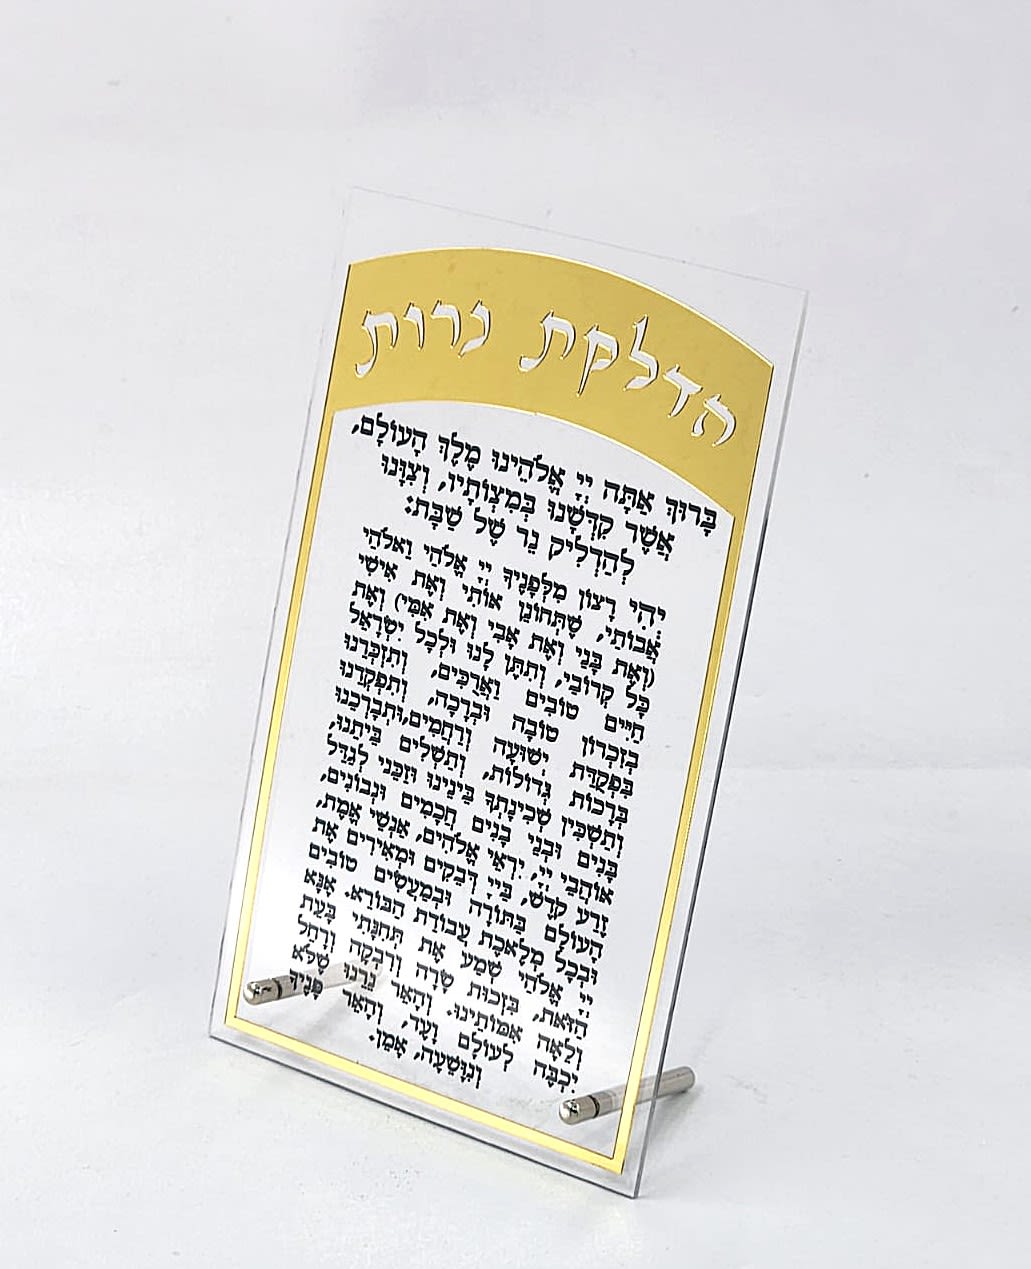 הדלקת נרות
בָּרוּךְ אַתָּה יְיָ אֱלֹהֵינוּ מֶלֶךְ הָעוֹלָם,
אֲשֶׁר קִדְּשָׁנוּ בְּמִצְוֹתָיו, וְצִוָּנוּ
לְהַדְלִיק נֵר שֶׁל שַׁבָּת:
יְהִי רָצוֹן מִלְּפָנֶיךָ יְיָ אֱלֹהַי וֵאלֹהֵי
אֲבוֹתַי, שֶׁתְּחוֹנֵן אוֹתִי וְאֶת אִישִׁי
(וְאֶת בָּנַי וְאֶת אָבִי וְאֶת אִמִּי) וְאֶת
כָּל קְרוֹבַי, וְתִתֵּן לָנוּ וּלְכָל יִשְׂרָאֵל
חַיִּים טוֹבִים וַאֲרֻכִּים, וְתִזְכְּרֵנוּ
בְּזִכְרוֹן טוֹבָה וּבְרָכָה, וְתִפְקְדֵנוּ
בִּפְקֻדַּת יְשׁוּעָה וְרַחֲמִים,וּתְבָרְכֵנוּ
בְּרָכוֹת גְּדוֹלוֹת, וְתַשְׁלִים בֵּיתֵנוּ,
וְתַשְׁכֵּין שְׁכִינָתְךָ בֵּינֵינוּ וְזַכֵּנִי לְגַדֵּל
בָּנִים וּבְנֵי בָנִים חֲכָמִים וּנְבוֹנִים,
אוֹהֲבֵי יְיָ, יִרְאֵי אֱלֹהִים, אַנְשֵׁי אֱמֶת,
זֶרַע קֹדֶשׁ, בַּייָ דְּבֵקִים וּמְאִירִים אֶת
הָעוֹלָם בַּתּוֹרָה וּבְמַעֲשִׂים טוֹבִים
וּבְכָל מְלֶאכֶת עֲבוֹדַת הַבּוֹרֵא. אָנָּא
יְיָ אֱלֹהַי שְׁמַע אֶת תְּחִנָּתִי בָּעֵת
הַזֹּאת, בִּזְכוּת שָׂרָה וְרִבְקָה וְרָחֵל
וְלֵאָה אִמּוֹתֵינוּ. וְהָאֵר נֵרֵנוּ שֶׁלֹּא
יִכְבֶּה לְעוֹלָם וָעֶד, וְהָאֵר פָּנֶיךָ
וְנִוָּשֵׁעָה, אָמֵן.